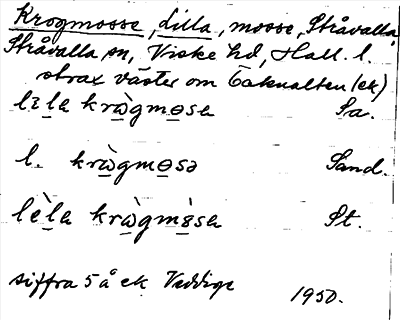 Krogmosse, Lilla, mosse, Stråvalla,
Stråvalla sn, Viske hd, Hall. l.
strax väster om Backualten (ek)
lı̀la krὼgmosa Sa.
l. krὼgmosə Sand.
lèla krὼgmòsa St.
siffra 5 å ek Veddige 1950.